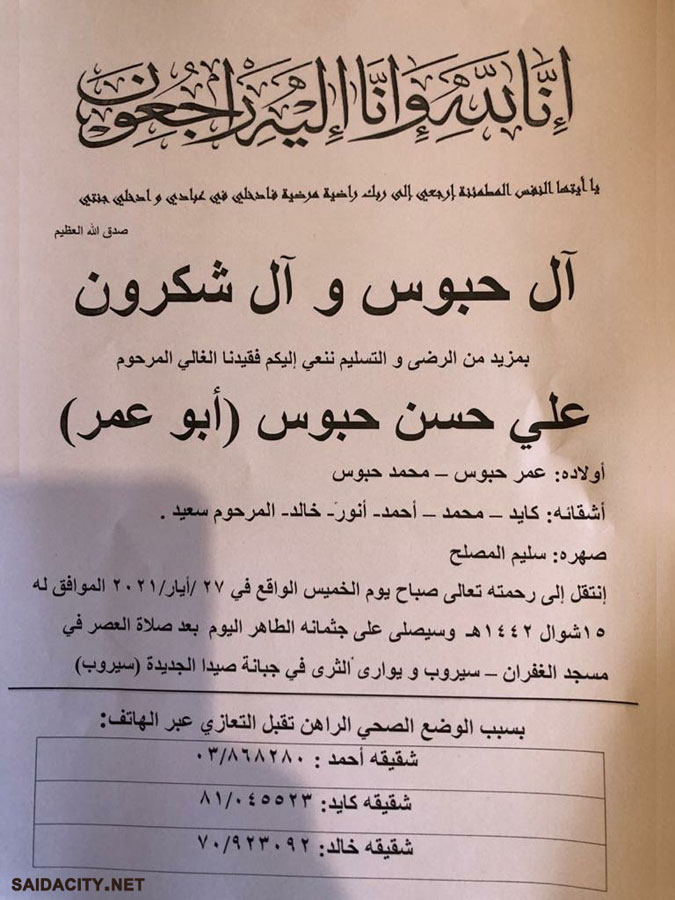 إنا لله وإنا إليه راجعون
يا أيتها النفس المطمئنة إرجعي إلى ربك راضية مرضية فادخلي في عبادي و ادخلي جنتي
صدق الله العظيم
آل حبوس و آل شكرون
بمزيد من الرضى و التسليم ننعي إليكم فقيدنا الغالي المرحوم
علي حسن حبوس (أبو عمر)
أولاده: عمر حبوس – محمد حبوس
أشقائه: كايد – محمد – أحمد- أنور- خالد- المرحوم سعيد .
صهره: سليم المصلح
إنتقل إلى رحمته تعالى صباح يوم الخميس الواقع في ٢٧ /أيار/٢٠٢١ الموافق له
١٥شوال ١٤٤٢هـ وسيصلى على جثمانه الطاهر اليوم بعد صلاة العصر في
مسجد الغفران – سيروب و يوارى الثرى في جبانة صيدا الجديدة (سيروب)
بسبب الوضع الصحي الراهن تقبل التعازي عبر الهاتف:
شقيقه أحمد : ٠٣/٨٦٨٢٨٠
شقيقه كايد: ٨١/٠٤٥٥٢٣
شقيقه خالد: ٧٠/٩٢٣٠٩٢
SAIDACITY.NET